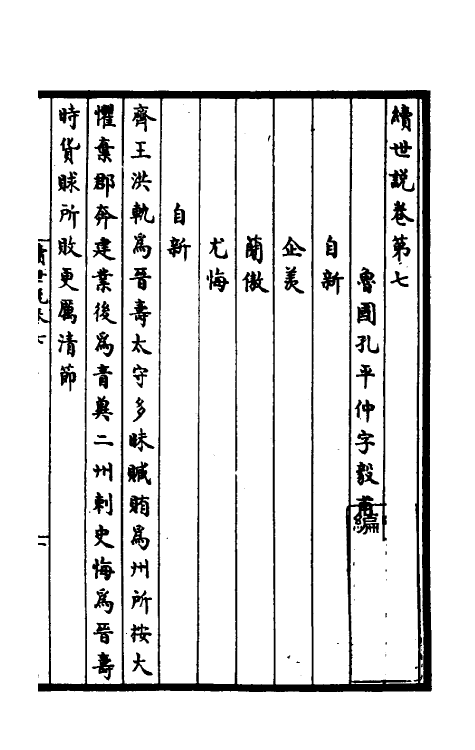 續世説卷第七
魯國孔平仲字毅甫編
自新
企羨
簡傲
尤悔
自新
齊王洪軌爲晉壽太守多昧贓賄爲州所按大
懼棄郡奔建業後爲青冀二州刺史悔爲晉壽
時貨賕所敗更厲清節